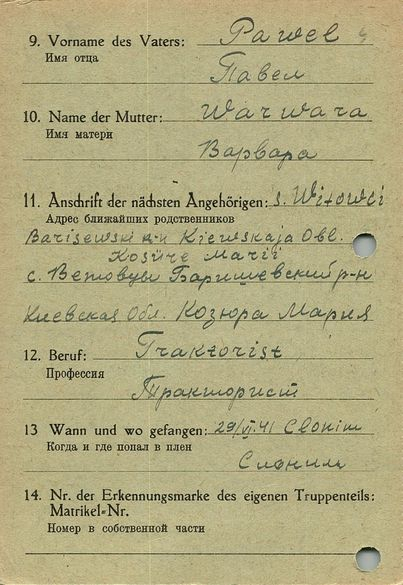 9. Vorname des Vaters: Pawel
Имя отца
Павел
10. Name der Mutter: Warwara
Имя матери
Варвара
11. Anschrift der nächsten Angehörigen: s. Witowci
Адрес ближайших родственников
Barisewski r-n Kiewskaja Obl.
Marii
с. Ветовцы Баришевский р-н
Киевская Обл. Козюра Мария
12. Beruf: Traktorist
Профессия
Тракторист
13 Wann und wo gefangen: 29/VI.41 Slonim
Когда и где попал в плен
Слоним
14. Nr. der Erkennungsmarke des eigenen Truppenteils:
Matrikel-Nr.
Номер в собственной части